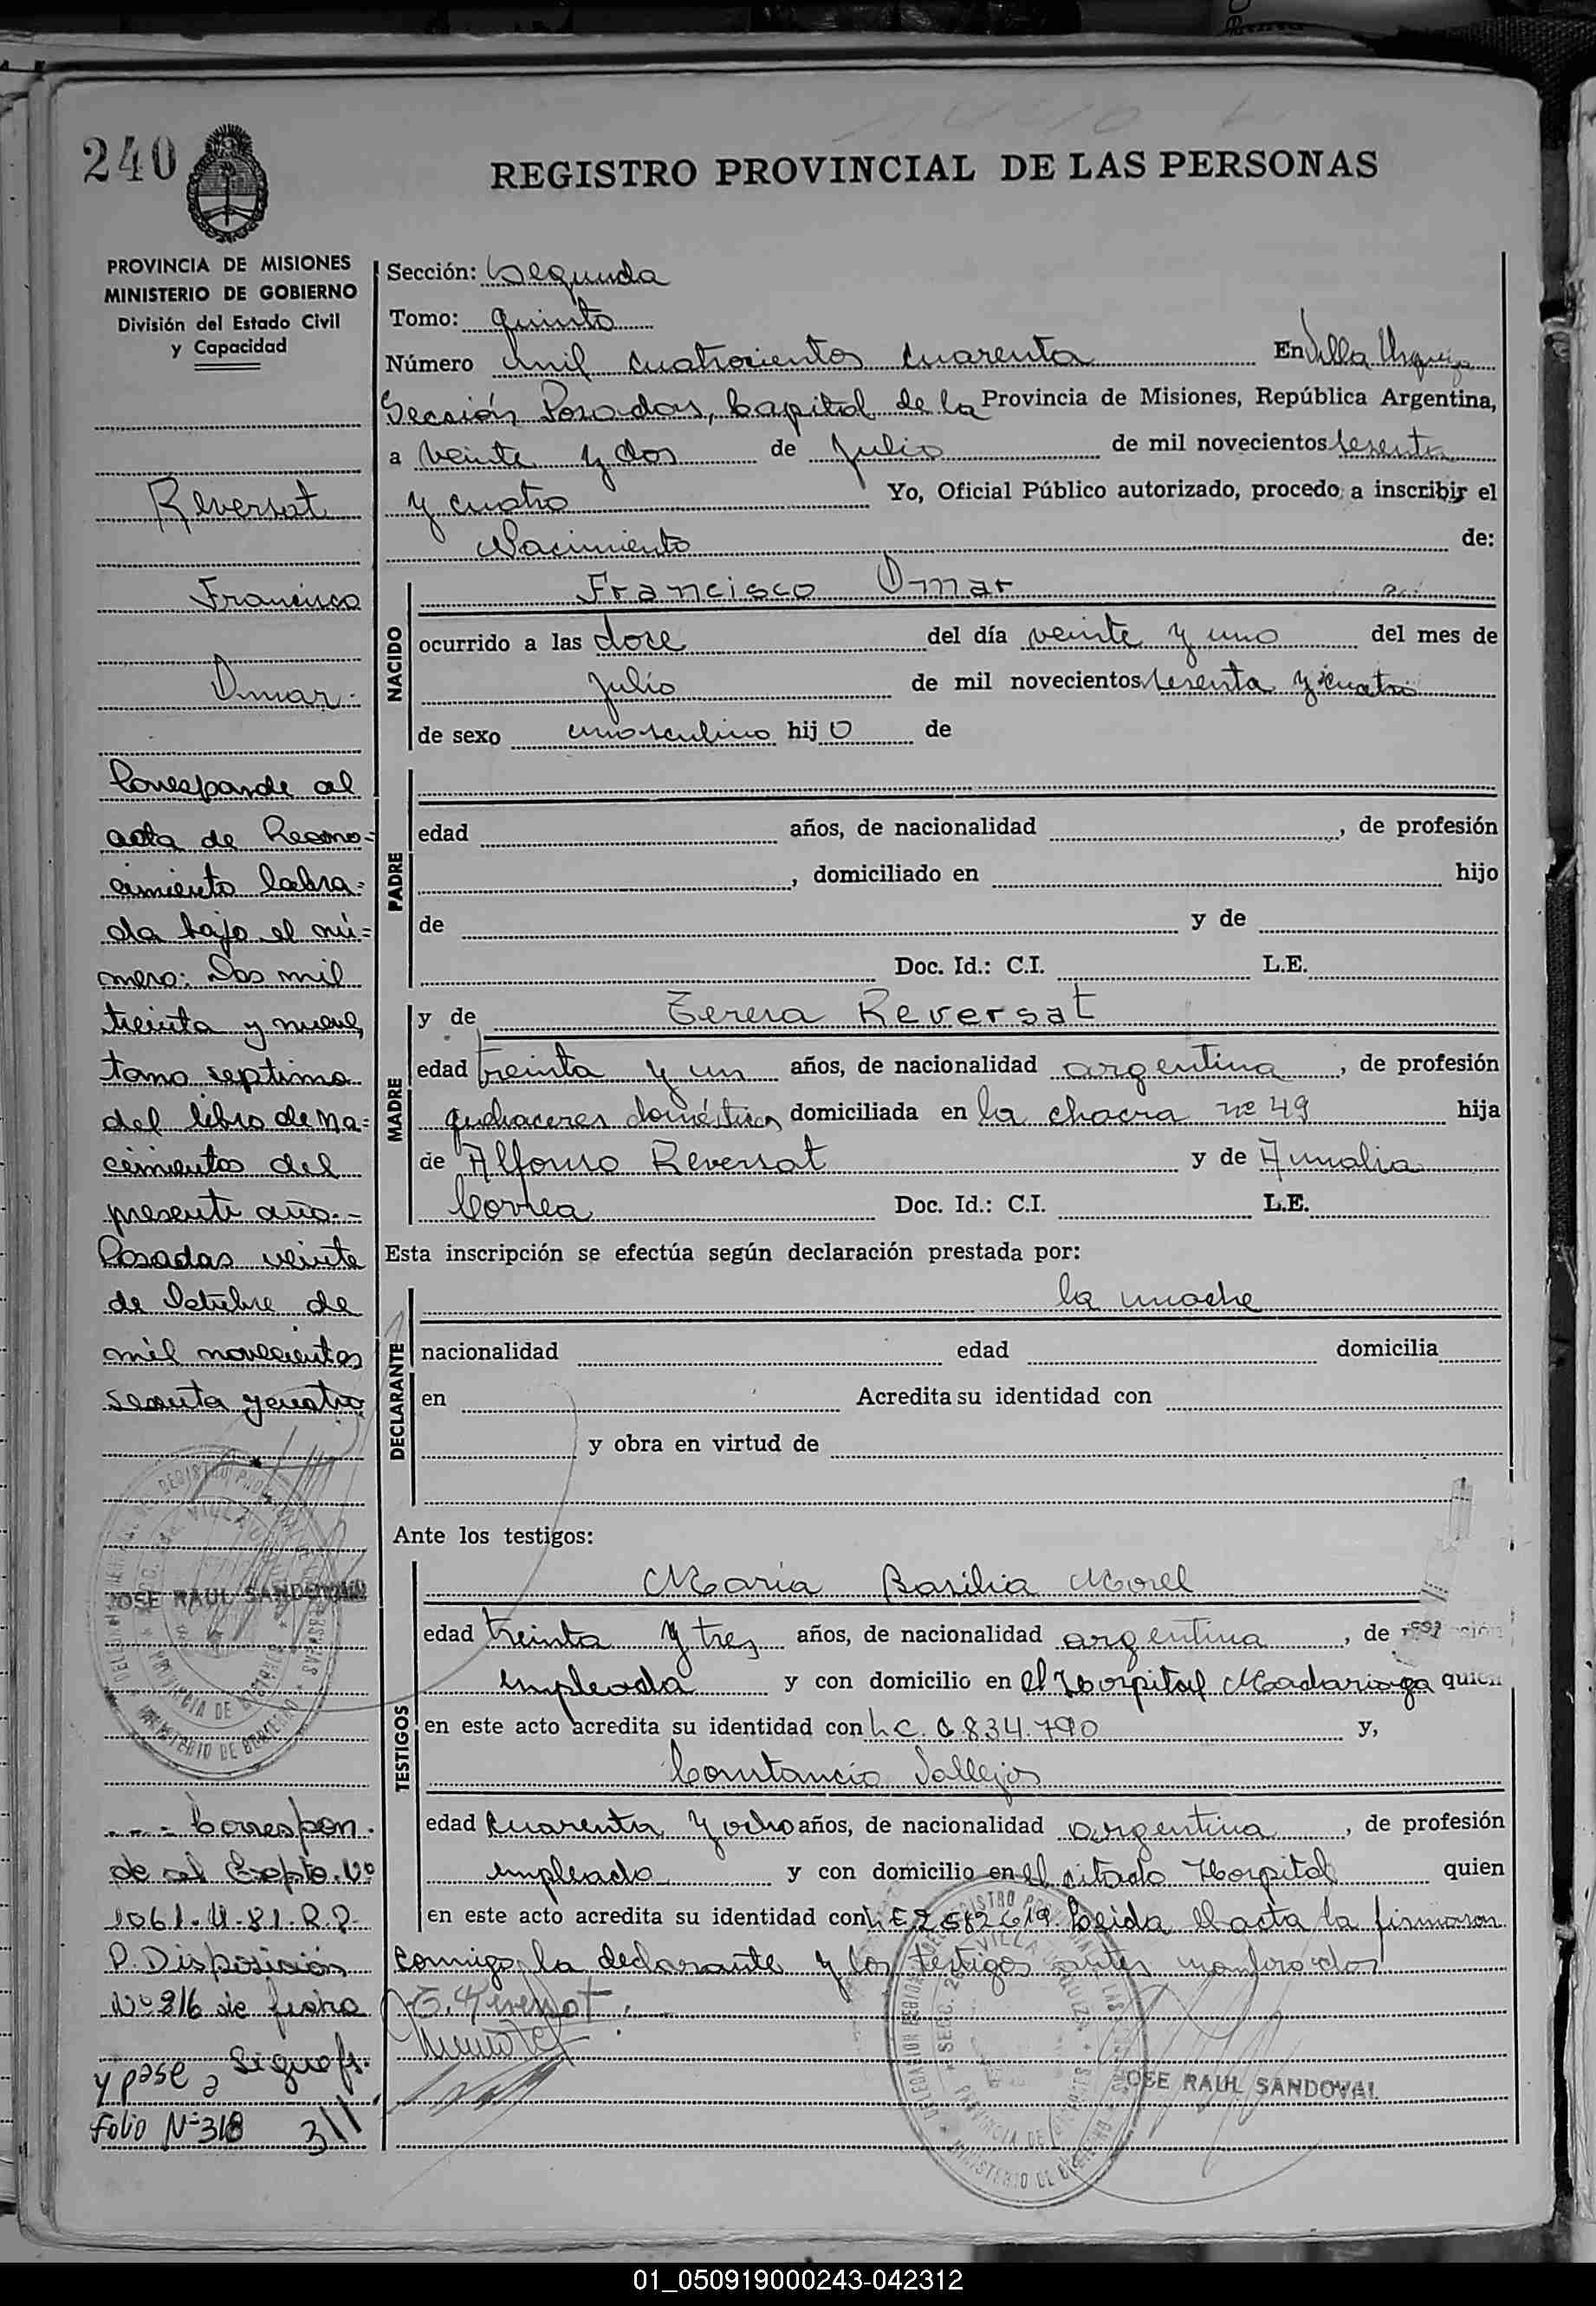 240
REGISTRO PROVINCIAL DE LAS PERSONAS
PROVINCIA DE MISIONES
MINISTERIO DE GOBIERNO
División del Estado Civil
y Capacidad
Reversat
Francisco
Omar.
Corresponde al
acta de Recono=
cimiento labra=
da bajo el nú=
mero: Dos mil
treinta y nueve,
tomo septimo
del libro de na=
cimientos del
presente año.-
Posadas veinte
de Octubre de
mil novecientos
sesenta y cuatro
JOSE RAUL SANDOVAL
- - - Correspon.
de al Expte. Nº
1061.U.81.R.P.
P. Disposición
Nº 816 de fecha
y pase a Sigue fs.
Folio Nº 318 311
Sección: Segunda
Tomo: quinto
Número mil cuatrocientos cuarenta En Villa Urquiza
Sección Posadas, Capital de la Provincia de Misiones, República Argentina,
a veinte y dos de Julio de mil novecientos sesenta
y cuatro Yo, Oficial Público autorizado, procedo a inscribir el
Nacimiento de:
NACIDO
Francisco Omar
ocurrido a las doce del día veinte y uno del mes de
Julio de mil novecientos sesenta y cuatro
de sexo masculino hijo de
PADRE
edad años, de nacionalidad , de profesión
, domiciliado en hijo
de y de
Doc. Id.: C.I. L.E.
MADRE
y de Teresa Reversat
edad treinta y un años, de nacionalidad argentina, de profesión
quehaceres domésticos domiciliada en la chacra nº 49 hija
de Alfonso Reversat y de Amalia
Correa Doc. Id.: C.I. L.E.
Esta inscripción se efectúa según declaración prestada por:
DECLARANTE
la madre
nacionalidad edad domicilia
en Acredita su identidad con
y obra en virtud de
Ante los testigos:
TESTIGOS
María Basilia Morel
edad treinta y tres años, de nacionalidad argentina, de
empleada y con domicilio en el Hospital Madariaga quien
en este acto acredita su identidad con L.C. 6.834.790 y,
Constancio Vallejos
edad cuarenta y ocho años, de nacionalidad argentina, de profesión
empleado y con domicilio en el citado Hospital quien
en este acto acredita su identidad con L.E. 2582619. Leida el acta la firmaron
conmigo la declarante y los testigos antes nombrados
T. Reversat.
JOSE RAUL SANDOVAL
01_050919000243-042312